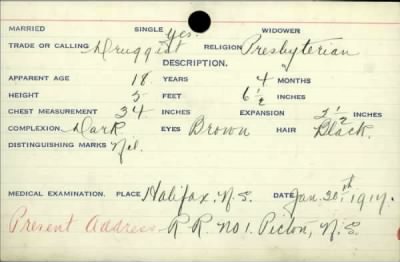 MARRIED SINGLE yes. WIDOWER
TRADE OR CALLING Druggist RELIGION Presbyterian
DESCRIPTION.
APPARENT AGE 18 YEARS 4 MONTHS
HEIGHT 5 FEET 6 1/2 INCHES
CHEST MEASUREMENT 34 INCHES EXPANSION 3 1/2 INCHES
COMPLEXION Dark EYES Brown HAIR Black.
DISTINGUISHING MARKS Nil.
MEDICAL EXAMINATION. PLACE Halifax, N.S. DATE Jan. 30th, 1917.
Present Address R.R. No 1. Pictou, N.S.